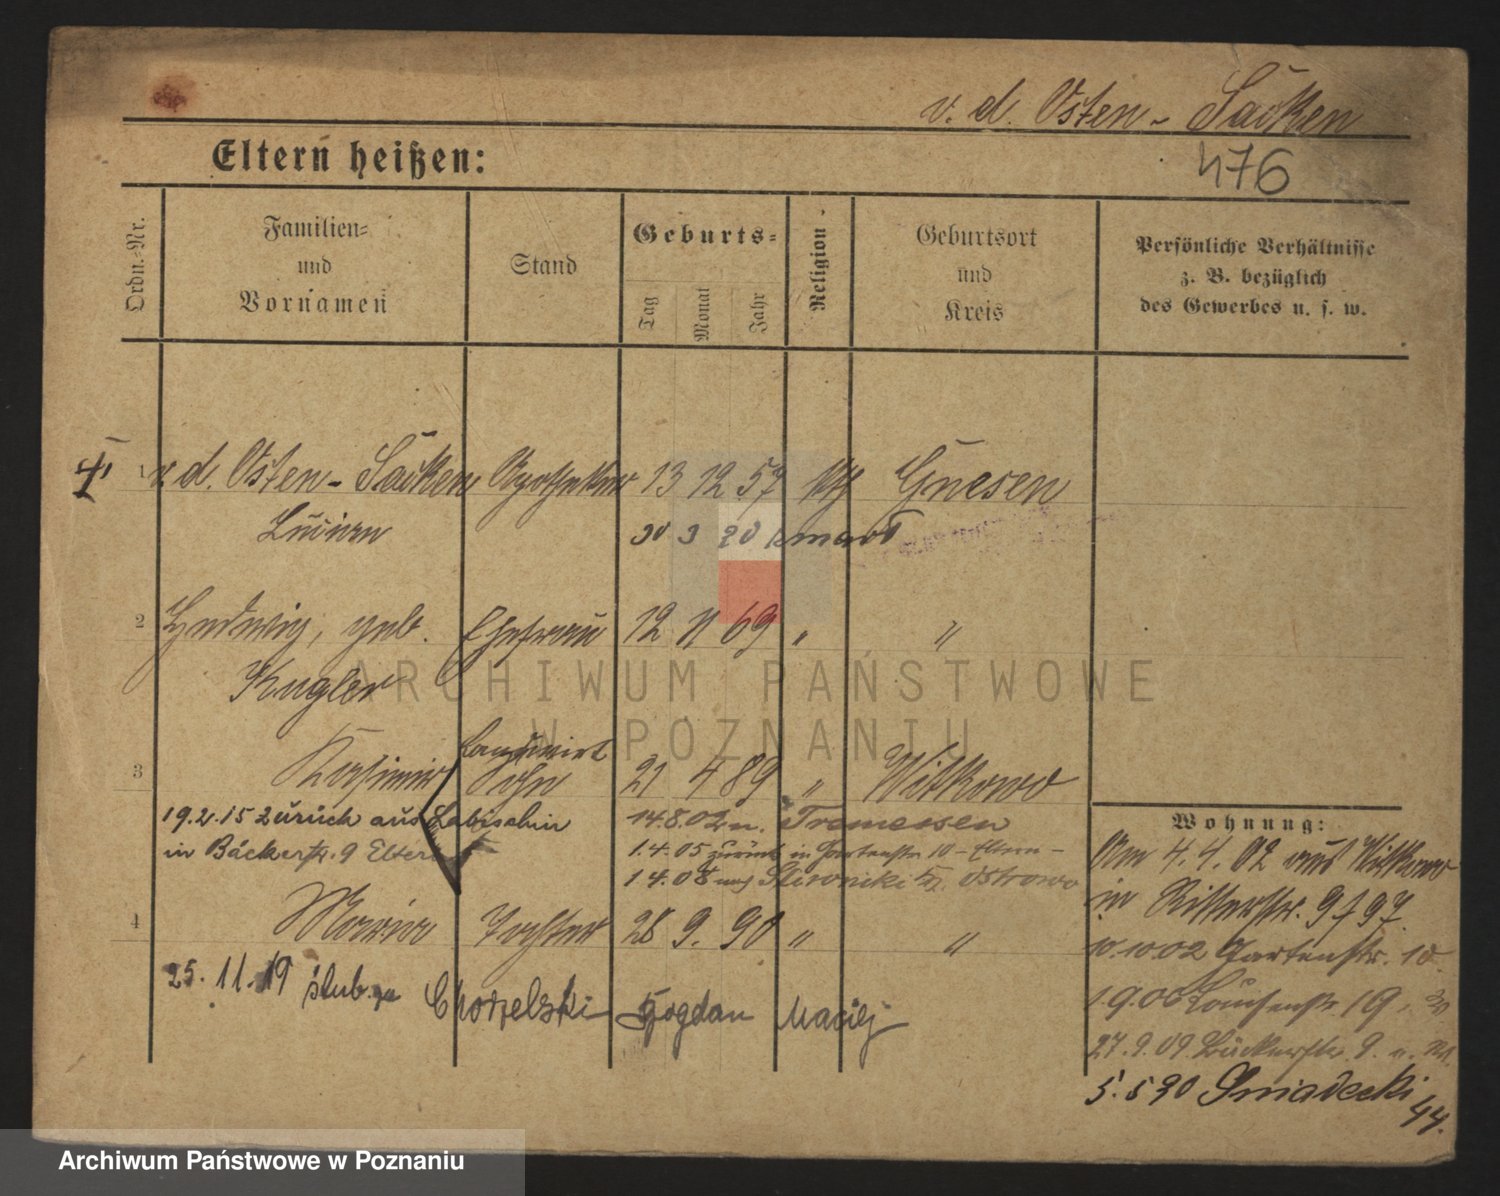 v. d. Osten-Sacken
476
Eltern heißen:
Ordn.-Nr.
Familien-
und
Vornamen
Stand
Geburts-
Tag
Monat
Jahr
Religion
Geburtsort
und
Kreis
Persönliche Verhältnisse
z. B. bezüglich
des Gewerbes u. s. w.
1 v. d. Osten-Sacken Apotheker 13 12 57 kth Gnesen
Lucian 30 3 20 zmarł
2 Hedwig, geb. Ehefrau 12 11 69 " "
Kugler
Landwirt
3 Kasimir Sohn 21 4 89 " Witkowo
19.2.15 zurück aus Labischin 14.8.02 n. Tremessen
in Bäckerstr. 9 Eltern 1.4.05 zurück in Gartenstr. 10 - Eltern -
1.4.08 nach Ostrowo
4 Maria Tochter 28 9. 90 " "
25.11.19 ślub. za Bogdan Maciej
Wohnung:
Am 4.4.02 aus Witkowo
in Ritterstr.
10.10.02 Gartenstr. 10
Louisenstr. 19
27.9.09 Bäckerstr. 9
Sniadecki
44.
ARCHIWUM PAŃSTWOWE
W POZNANIU
Archiwum Państwowe w Poznaniu